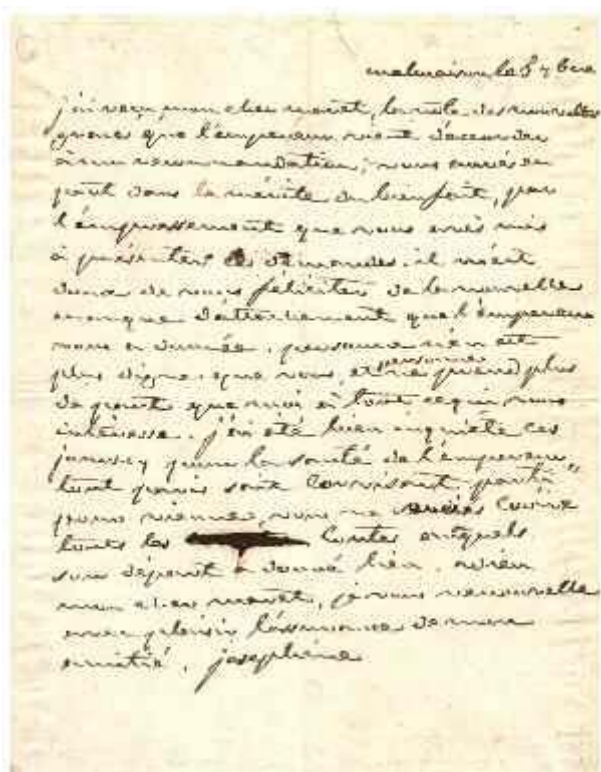 malmaison le 5 7bre
j'ai reçu, mon cher maret, la note des nouvelles
graces que l'empereur vient d'accorder
à ma recommandation; vous avés eu
part dans le mérite du bienfait, par
l'empressement que vous avés mis
à présenter les demandes. il m'est
doux de vous féliciter de la nouvelle
marque d'attachement que l'empereur
vous a donnée. personne n'en est
plus digne que vous, et personne ne prend plus
de part que moi à tout ce qui vous
intéresse. j'ai été bien inquiète ces
jours-cy pour la santé de l'empereur
tout paris sait corvisart parti
pour vienne, vous ne croire
touts les contes auxquels
son départ a donné lieu. adieu
mon cher maret, je vous renouvelle
avec plaisir l'assurance de mon
amitié. joséphine